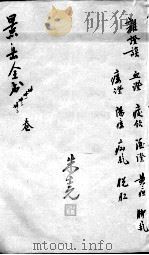 雜證謨 血證 痰飲 濕證 黃疸 腳氣
痿證 陽痿 疝氣 脫肛
景岳全书
卷